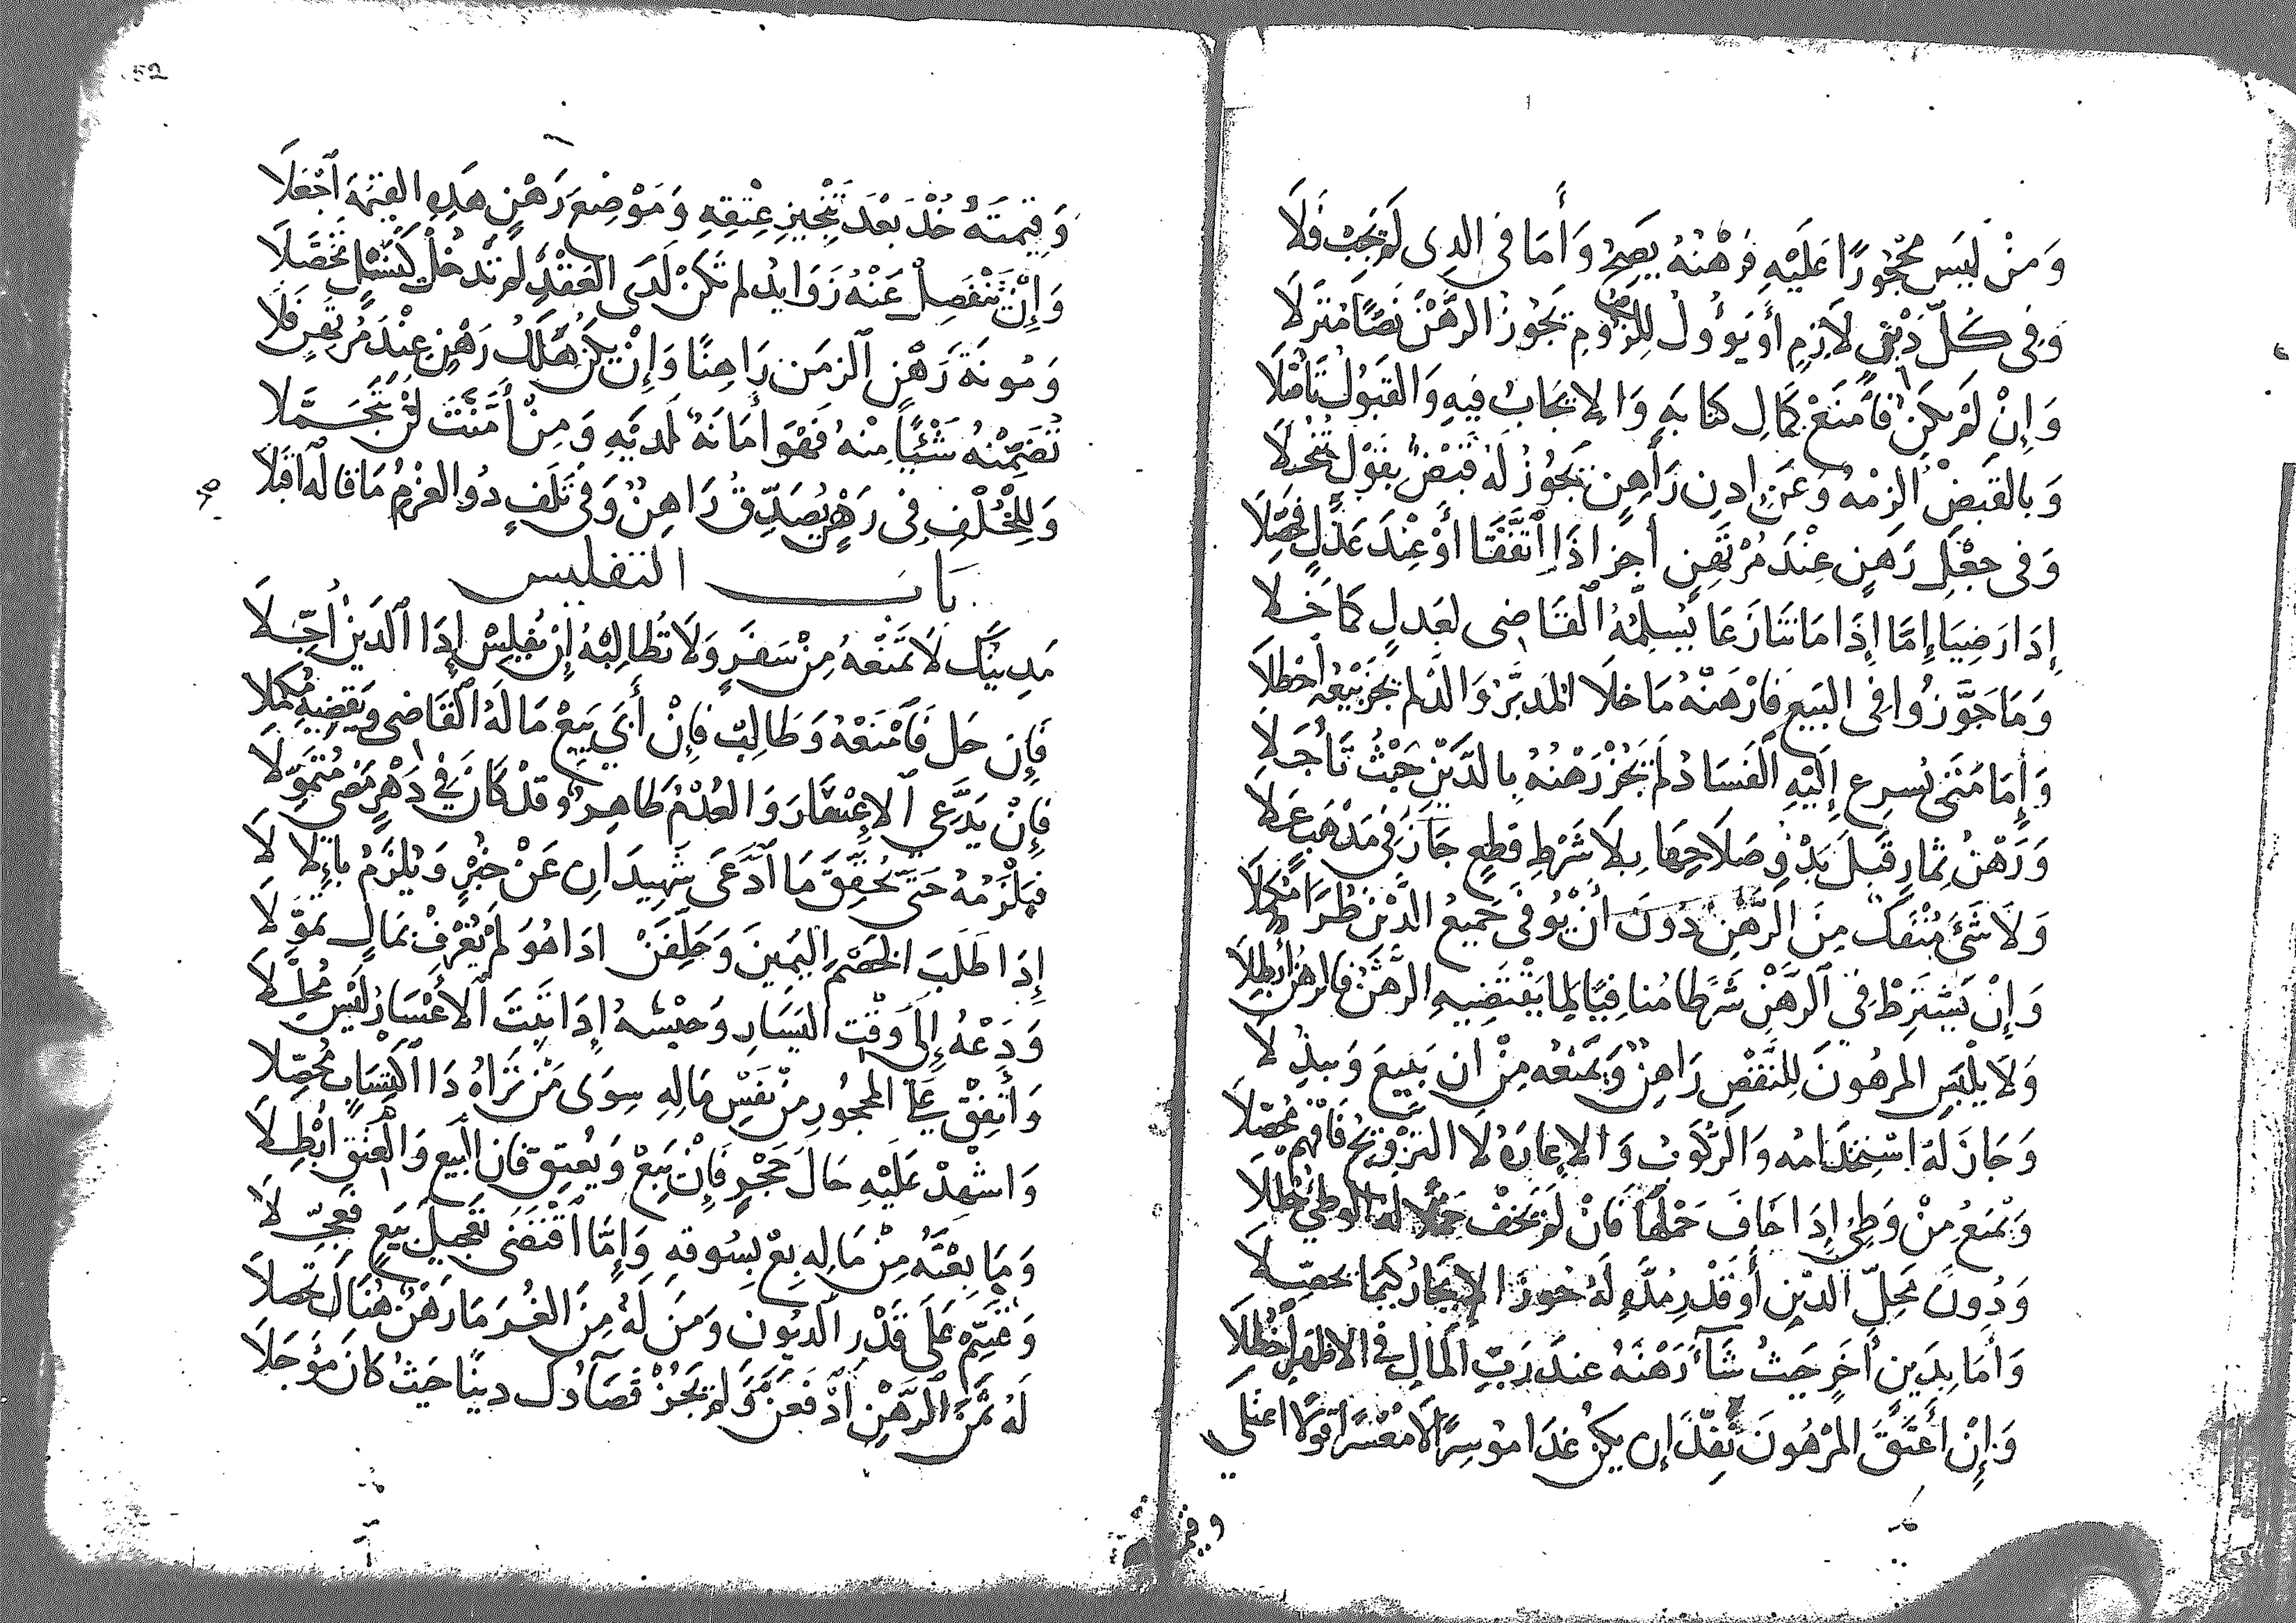 وَمَنْ لَيْسَ مَحْجُورًا عَلَيْهِ فَرَهْنُهُ يَصِحُّ وَأَمَا فِى الدِى لَمْ يَجِبْ فَلَا
وَفِى كُلِّ دَيْنٍ لَازِمٍ أَو يَؤُولُ لِلزُومِ يَجُوزُ الرَّهْنُ نَصًّا مُنَزَّلَا
وَإِنْ لَمْ يَكُنْ فَامْنَعْ كَمَالِ كِتَابَةٍ وَالإِيجَابُ فِيهِ وَالقَبُولُ تَأَصَّلَا
وَبِالقَبْضِ الزِمْهُ وَعَنْ إِدنِ رَاهِنٍ يَجُوزُ لَهُ قَبْضٌ بِقَوْلٍ
وَفِى جَعْلِ رَهْنٍ عِنْدَ مُرْتَهِنٍ أَجِزْ إِذَا اتَّفَقَا أَوْ عِنْدَ عَدْلٍ فَحَصِّلَا
إِدَا رَضِيَا إِمَّا إِذَا مَا تَنَازَعَا يُسَلِّمُهُ القَاضِى لِعَدلٍ كَمَا خَلَا
وَمَا جَوَّزُوا فِى البَيْعِ فَارْهَنْهُ مَا خَلَا المُدَبَّرُ وَالَّذْ لَم يَجُزْ بَيْعُهُ احْظُلَا
وَأَمَا مَتَى يُسرِع إِلَيْهِ الفَسَادُ لَمْ يَجُزْ رَهْنُهُ بِالدَّيْنِ حَيْثُ تَأَجَّلَا
وَرَهْنُ ثِمَارٍ قَبْلَ بَدْوِ صَلَاحِهَا بِلَا شَرْطِ قَطْعٍ جَازَ فِى مَذْهَبٍ عَلَا
وَلَا شَيْءَ مُنْفَكٌّ مِنَ الرَّهْنِ دُونَ أَنْ يُوَفَّى جَمِيعُ الدَّيْنِ طُرًّا مُكَمَّلَا
وَإِنْ يَشْتَرِطْ فِي الرَّهْنِ شَرْطًا مُنَافِيًا لِمَا يَقْتَضِيهِ الرَّهْنُ فَالرَهْنُ أَبْطِلَا
وَلَا يَلْبَسِ المرهُونَ لِلنَّقْصِ رَاهِنٌ وَيَمْنَعُهُ مِنْ ان يَبِيعَ وَيَبذُلَا
وَجَازَ لَهُ اسْتِخْدَامُه وَالرُّكُوبُ وَالإِعَارَةُ لَا التَزْوِيجُ فَافْهَمْ مُحَصِّلَا
وَيُمْنَعُ مِنْ وَطِئٍ إِدَا خَافَ حَمْلَهَا فَانْ لَمْ يَخَفْ حَمْلًا لَهُ الوَطِئُ حُظِلَا
وَدُونَ مَحِلِّ الدَّيْنِ أَو قَدْرِ مُدَّةٍ لَهُ جَوِّزِ الإِيجَارَ كَيْمَا يُحَصِّلَا
وَأَمَا بِدَينٍ أَخَرٍ حَيْثُ شَآءَ رَهْنَهُ عِندَ رَبِّ المَالِ فِى الاظْهَرِ احْظُلَا
وَإِنْ أَعْتَقَ المَرْهُونَ نَفِّذْ إِن يَكُنْ غَدَا مُوسِرًا لَا مُعْسِرًا قَوْلًا اعْتَلَى
وقيمته
52
وَقِيمَتَهُ خُذْ بَعْدَ تَنْجِيزِ عِتْقِهِ وَمَوْضِعَ رَهْنٍ هَذِهِ القِيْمَةَ اجْعَلَا
وَإِنْ تَنْفَصِلْ عَنْهُ زَوَايِدُ لَم تَكُنْ لَدَى العَقْدِ لَمْ تَدْخُلْ كَنَسْلٍ تَحَصَّلَا
وَمُونَةَ رَهْنٍ الزِمَن رَاهِنًا وَإِنْ يَكُنْ هُلْكُ رَهْنٍ عِنْدَ مُرْتَهِنٍ فَلَا
تُضَمِّنْهُ شَيْئًا مِنْهُ فَهْوَ أَمَانَةٌ لَدَيْهِ وَمَنْ أَمَّنْتَ لَنْ يَتَحَمَّلَا
وَلِلْخُلْفِ فِى رَهْنٍ يُصَدِّقُ رَاهِنٌ وَفِى تَلَفٍ دُو الغُرْمِ مَا قَالَهُ اقْبَلَا
بَابُ التفليس
مَدِينُكَ لَا تَمْنَعْهُ مِنْ سَفَرٍ وَلَا تُطَالِبْهُ إِنْ يُفْلِسْ إِذَا الدَّيْنُ أُجِّلَا
فَإِن حَلَّ فَامْنَعْهُ وَطَالِبْ فَإِنْ أَبَى يَبِيعُ مَالَهُ القَاضِى وَيَقْضِيهِ مُكْمَلَا
فَإِنْ يَدَّعِي الإِعْسَارَ وَالعُدْمُ ظَاهِرٌ وَقَدْ كَانَ فِي دَهْرٍ مَضَى مُتَمَوِّلَا
فَيَلْزَمُهُ حَتَّى يُحَقِّقَ مَا ادَّعَى شَهِيدَانِ عَنْ خُبْرٍ وَيُلْزَمُ بِالإِلَا
إِدَا طَلَبَ الخَصْمُ اليَمِينَ وَحَلِّفَنْ ادَا هُوَ لَمْ يُعْرَفْ بِمَالٍ تَمَوَّلَا
وَدَعْهُ إِلَى وَقْتِ اليَسَارِ وَحَبْسُهُ إِدَا ثَبَتَ الأَعْسَارُ لَيْسَ مُحَلَّلَا
وَأَنْفِقْ عَلَى المَحْجُورِ مِنْ نَفْسِ مَالِهِ سِوَى مَنْ تَرَاهُ ذَا اكْتِسَابٍ مُحَصِّلَا
وَاشْهِدْ عَلَيْهِ حَالَ حَجْرٍ فَإِنْ يَبِعْ وَيُعْتِقْ فَإِن البَيْعَ وَالعِتْقَ أَبْطِلَا
وَمَا بِعْتَهُ مِنْ مَالِهِ بِعْ بِسُوقِهِ وَإِمَّا اقْتَضَى تَعْجِيلَ بَيْعٍ فَعَجِّلَا
وَقَسِّمْ عَلَى قَدْرِ الدُّيُونِ وَمَنْ لَهُ مِنَ الغُرَمَا رَهْنٌ هُنَالِكَ تَحَصَّلَا
لَهُ ثَمَنَ الرَّهْنِ ادْفَعَنَّ وَلَمْ يَجُزْ قَضَآؤُكَ دَيْنًا حَيْثُ كَانَ مُؤَجَّلَا